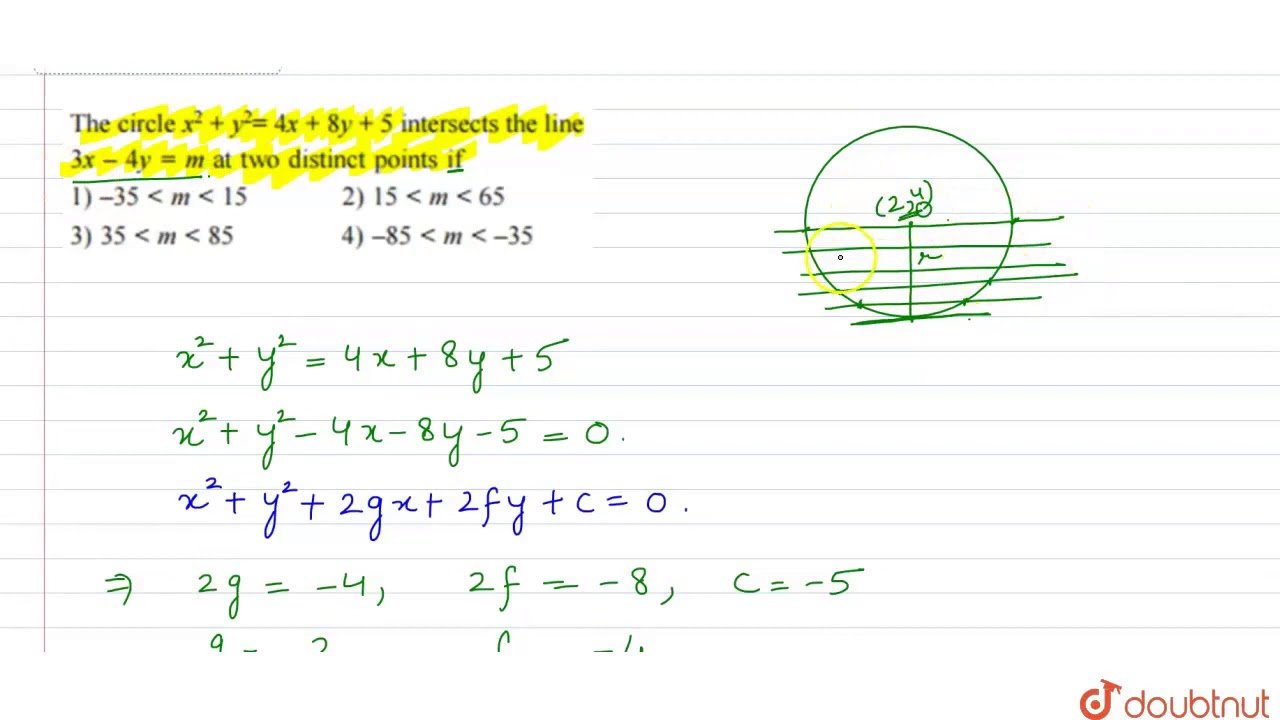 The circle x² + y²= 4x + 8y + 5 intersects the line
3x – 4y = m at two distinct points if
1) –35 < m < 15 2) 15 < m < 65
3) 35 < m < 85 4) –85 < m < –35
(2 4)
r
x² + y² = 4x + 8y + 5
x² + y² – 4x – 8y – 5 = 0.
x² + y² + 2gx + 2fy + c = 0.
⇒ 2g = –4, 2f = –8, c = –5
doubtnut